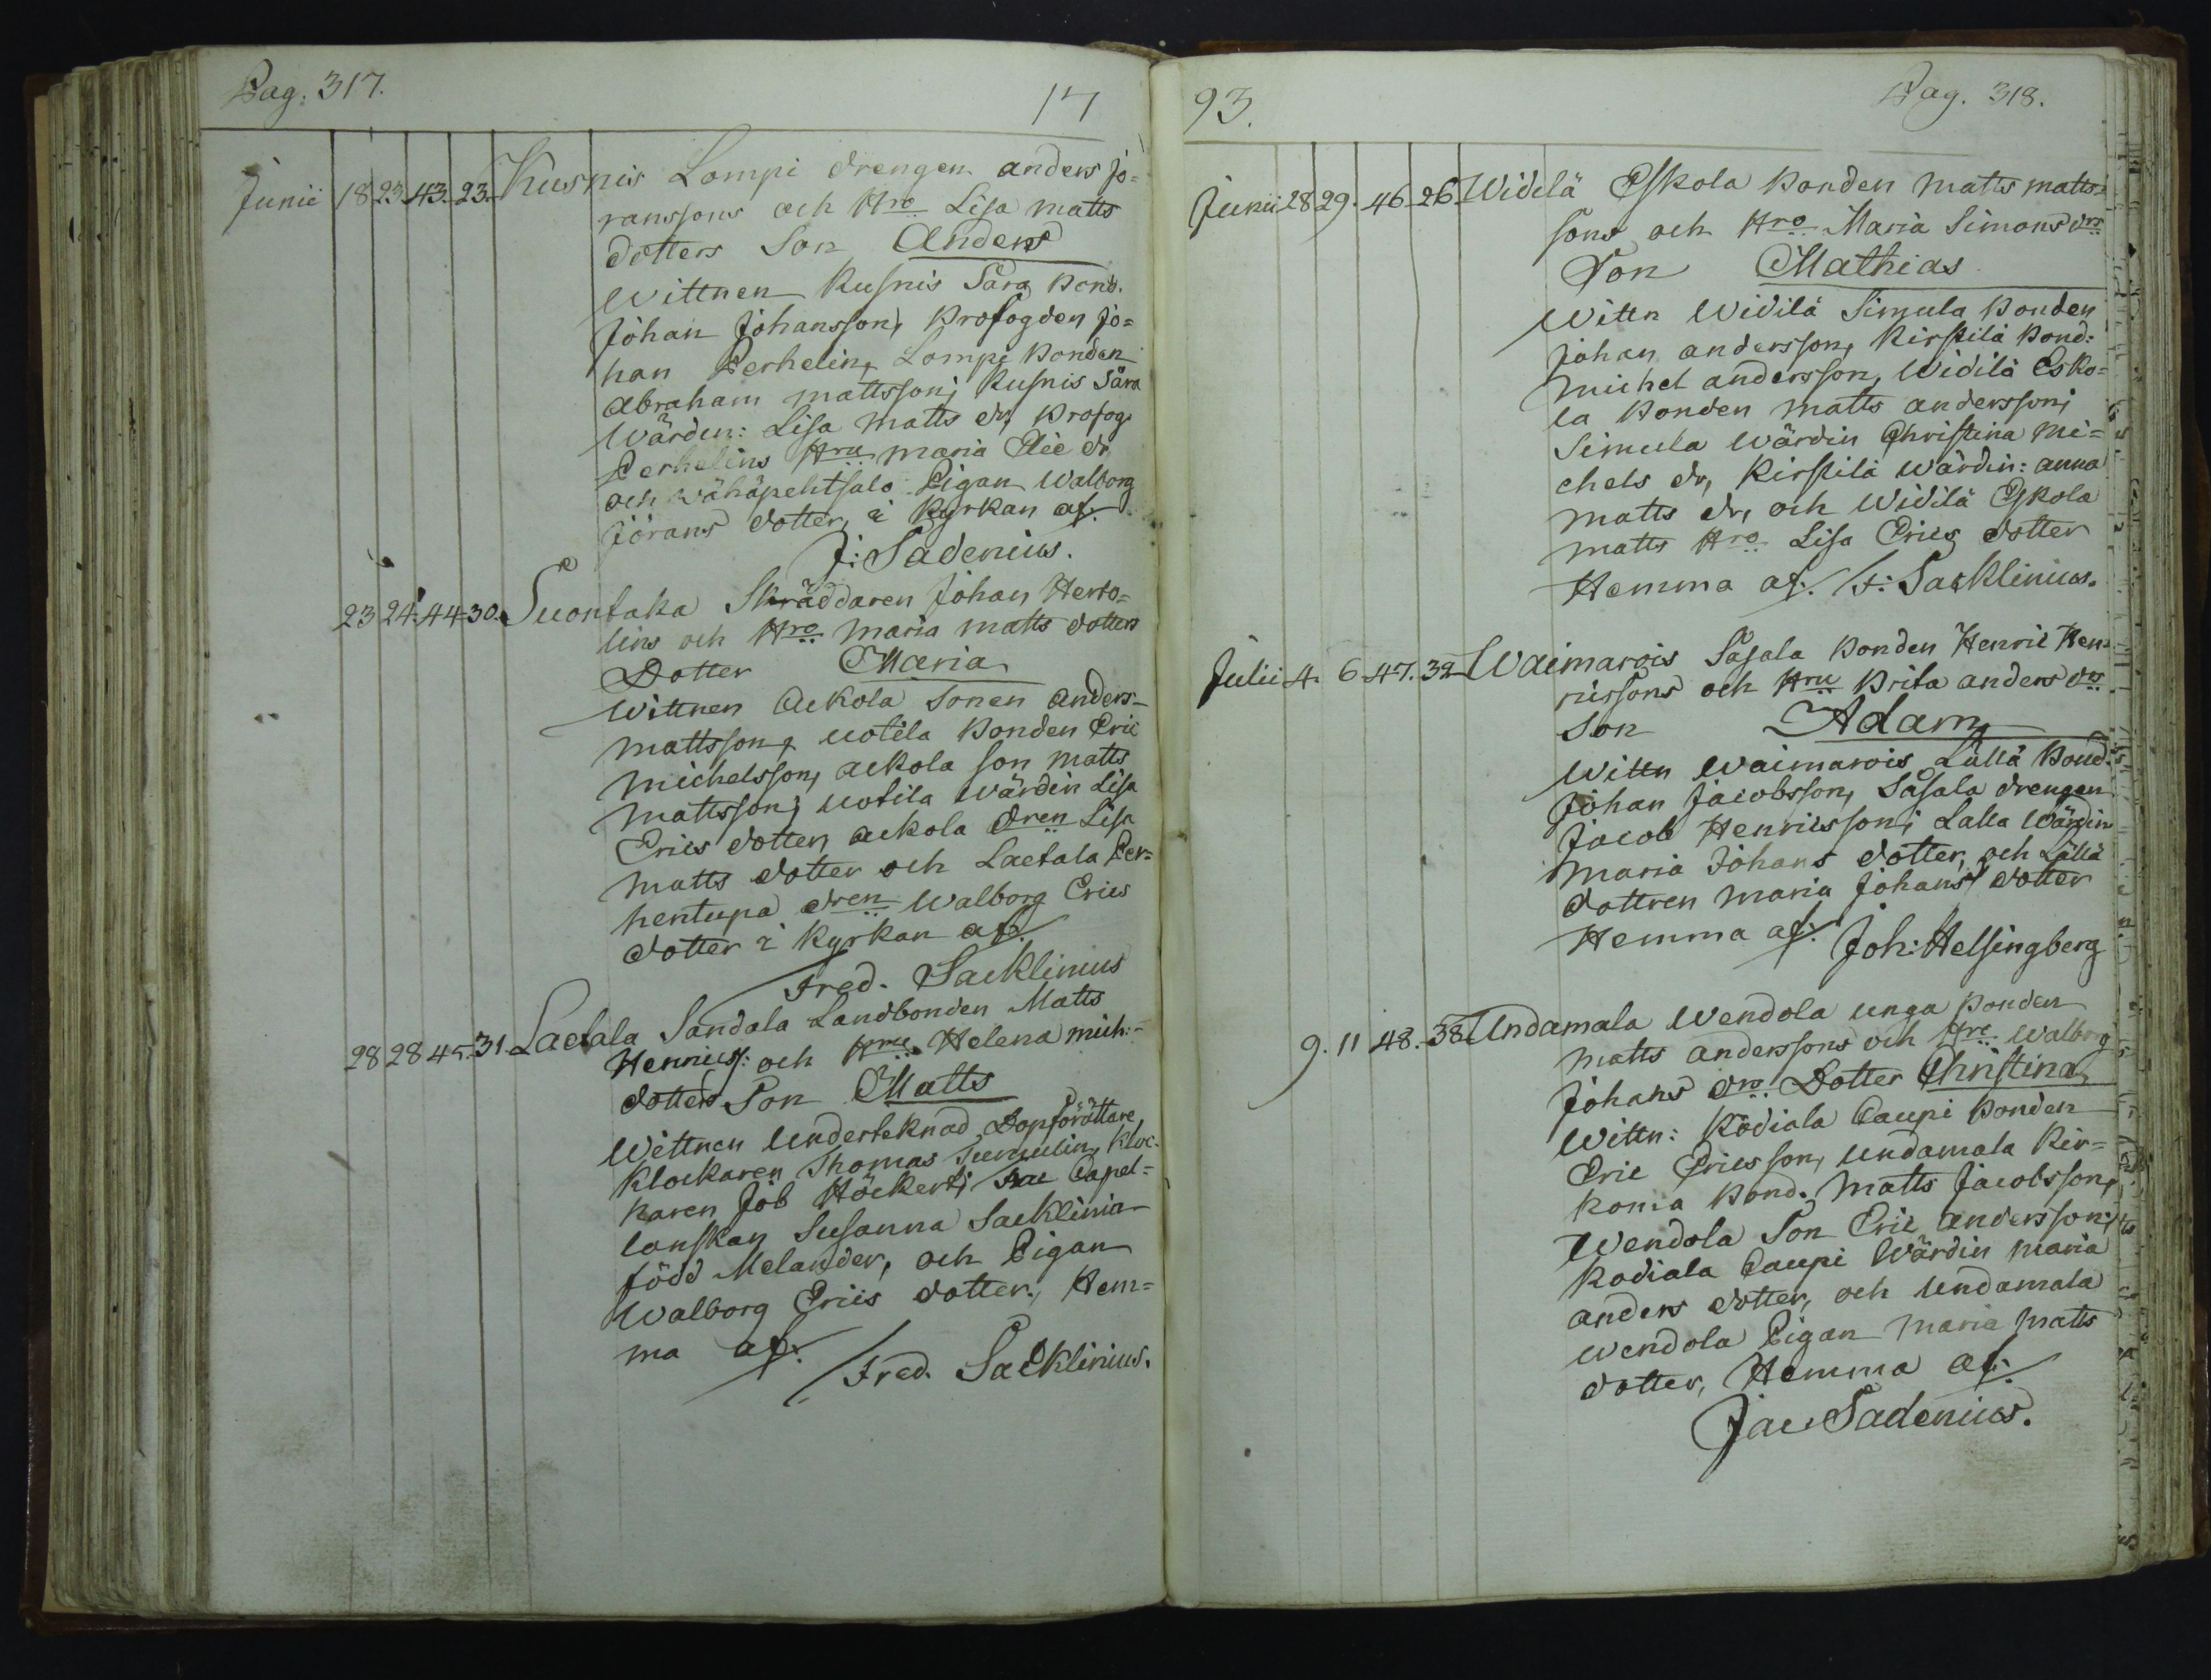 Pag: 317.
17
Junii 18 23. 43. 23. Kusnis Lompi drengen anders Jö=
ranssons och Hro Lisa matts
dotters Son Anders
Wittnen Kusnis Sara Bond.
Johan Johansson, Profogden Jo=
han Perhelin, Lompi Bonden
Abraham mattsson; Kusnis Sara
Wärdin: Lisa matts dr, Profog.
Perhelins Hru maria Elie dr,
och wähäpehtsalo Pigan Walborg
Jörans dotter, i Kyrkan af.
J: Sadenius.
23 24. 44. 30. Suontaka Skräddaren Johan Herto=
lins och Hro maria matts dotters
Dotter Maria
Wittnen Ackola Sonen anders
mattsson, uotila Bonden Eric
michelsson, ackola son matts
mattsson; uotila wärdin Lisa
Erics dotter, ackola dren Lisa
matts dotter och Laetala Per=
hentupa dren Walborg Erics
dotter i Kyrkan af.
Fred. Sacklinius
28 28 45. 31. Laetala Sandala Landbonden Matts
Henricss: och Hru Helena mich:
dotters Son Matts
Wittnen Underteknad Dopförättare,
Klockaren Thomas Kloc-
karen Job Höckert; Capel=
lanskan Susanna Sacklinia
född Melander, och Pigan
Walborg Erics dotter., Hem=
ma af.
Fred. Sacklinius.
93.
Pag. 318.
Junii 28 29. 46 26 Widilä Eskola Bonden matts matts
sons och Hro Maria Simons drs
Son Mathias
Wittn Widilä Simula Bonden
Johan andersson, Kirstilä Bond:
michel andersson, Widilä Esko=
la Bonden matts andersson;
Simula Wärdin Christina Mi=
chels dr, Kirstilä wärdin: anna
matts dr, och Widilä Eskola
matts Hro Lisa Erics dotter
Hemma af. F: Sacklinius.
Julii 4. 6. 47. 32 Waimarois Sasala Bonden Henric Hen=
ricssons och Hru Brita anders drs
Son Adam
Wittn Waimarois Lällä Bond.
Johan Jacobsson, Sasala drengen
Jacob Henricsson; Lalla Wärdin
Maria Johans dotter, och Lällä
dottren maria Johans dotter
Hemma af. Joh: Helsingberg
9. 11 48. 38 Undamala Wendola unga Bonden
matts anderssons och Hro Walborg
Johans drs Dotter Christina
Wittn: Kodiala Caupi Bonden
Eric Ericsson, undamala Kir=
koma Bond. Matts Jacobsson,
Wendola Son Eric andersson;
Kodiala Caupi Wärdin maria
anders dotter, och undamala
wendola Pigan maria matts
dotter, Hemma af.
Jac Sadenius.